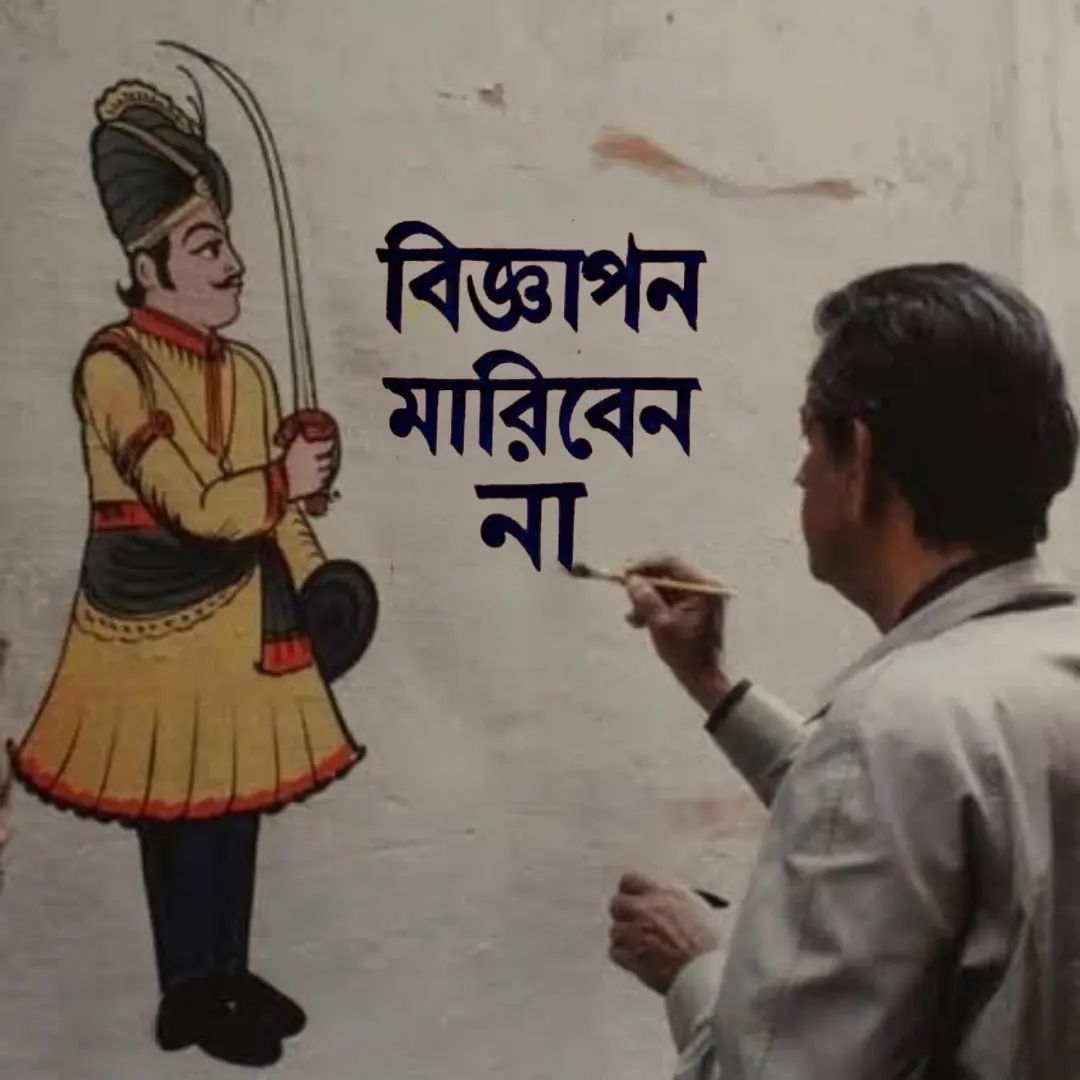 বিজ্ঞাপন
মারিবেন
না